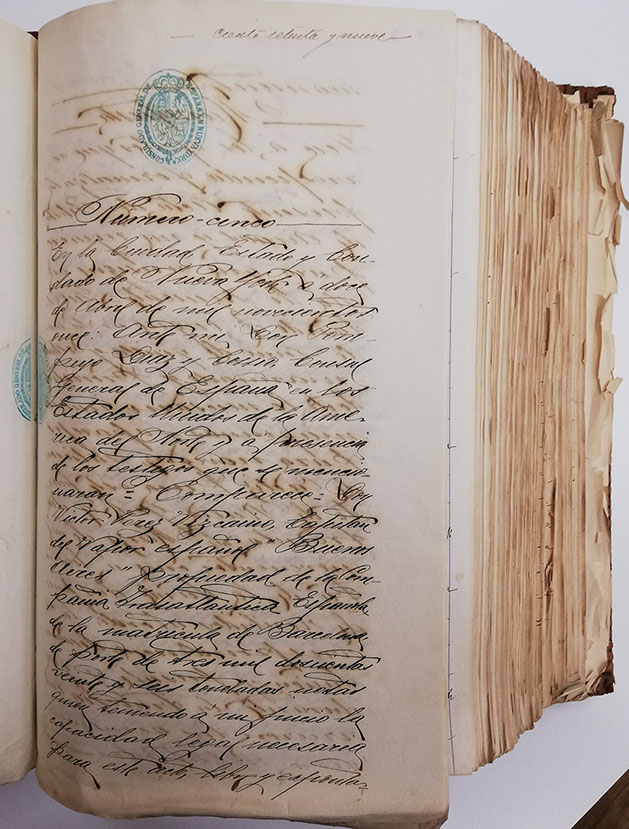 ciento setenta y nueve
CONSULADO GENERAL DE ESPAÑA EN NUEVA YORK
Número cinco
En la Ciudad Estado y Con-
dado de Nueva York a doce
de Abril de mil novecientos
once: Ante mi Don Pom-
peyo Diaz y Cossio Consul
General de España en los
Estados Unidos de la Ame-
rica del Norte y a presencia
de los testigos que se mencio-
naran = Comparece = Don
Victor Perez Vizcaino, Capitan
del vapor español "Buenos
Aires" propiedad de la Com-
pañia Trasatlantica Española
de la matricula de Barcelona
de porte de tres mil doscientas
veinte y seis toneladas netas
quien teniendo á mi juicio la
capacidad legal necesaria
para este acto, libre y esponta-